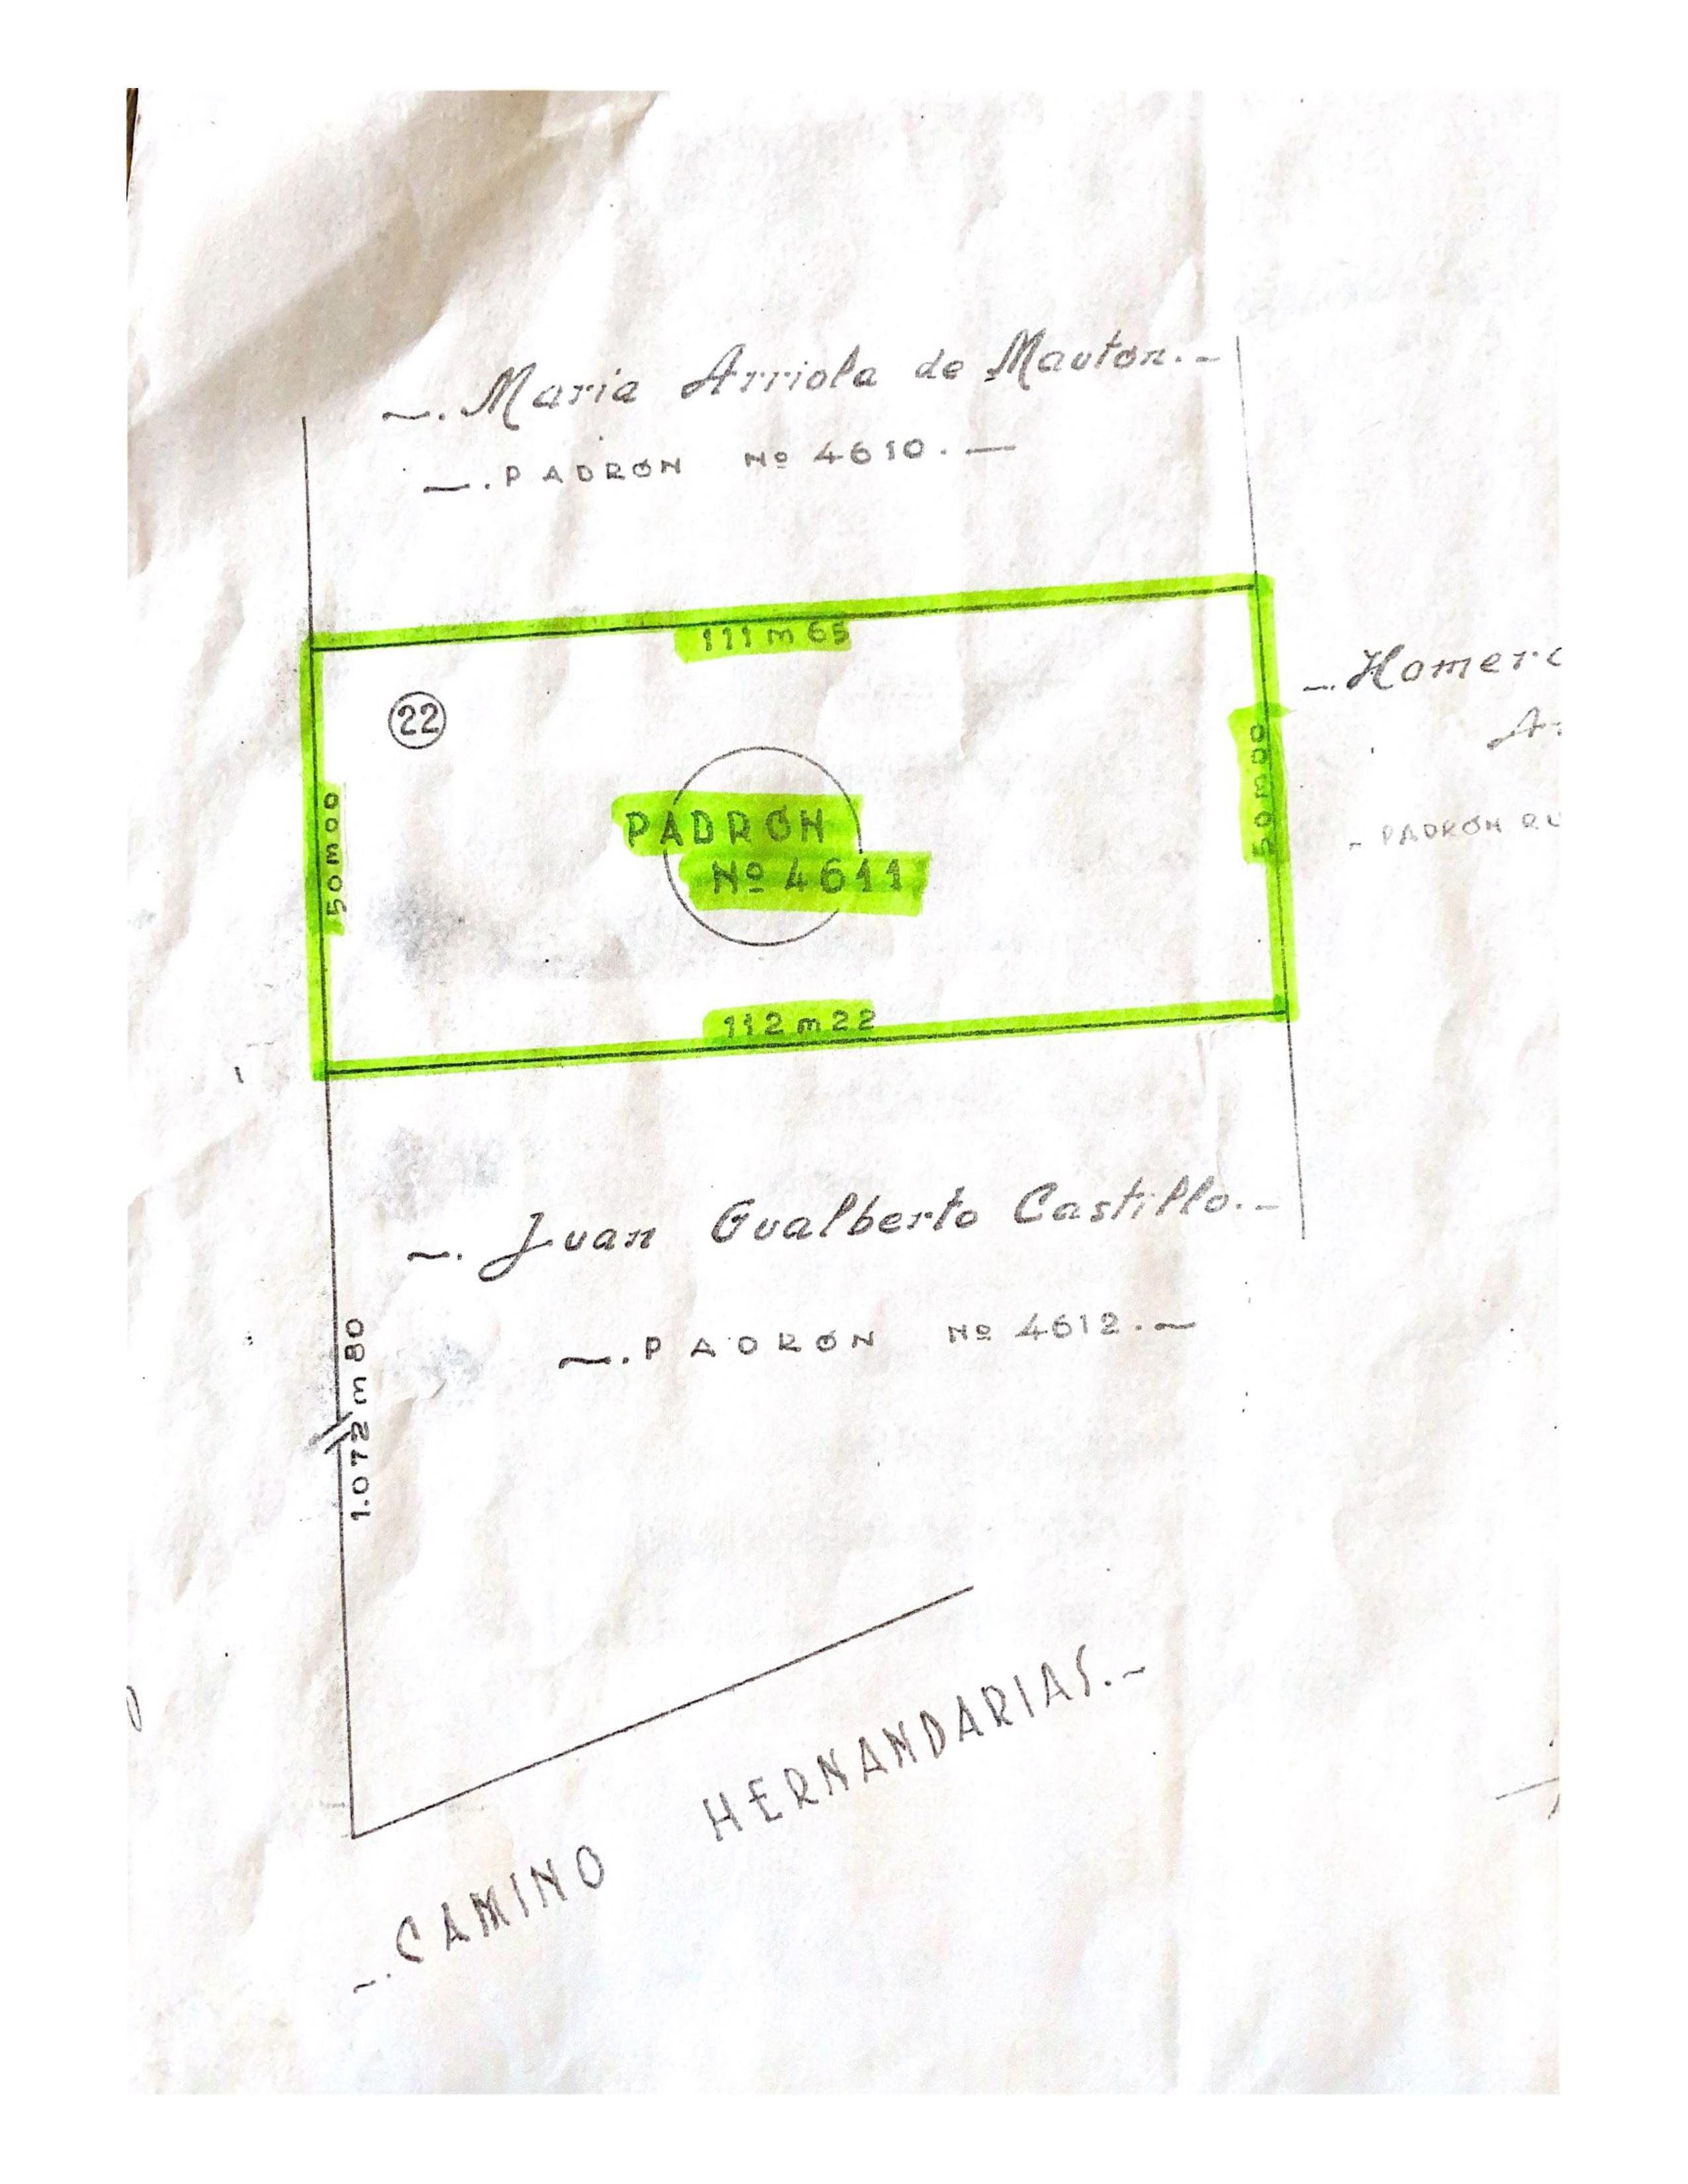 ~. Maria Arriola de Mauton. -
~. PADRÓN Nº 4610. —
111 m 65
22
50 m 00
PADRÓN
Nº 4611
50 m 00
112 m 22
- PADRÓN
~. Juan Gualberto Castillo. -
~. PADRÓN Nº 4612. ~
1.072 m 80
~. CAMINO HERNANDARIAS. ~